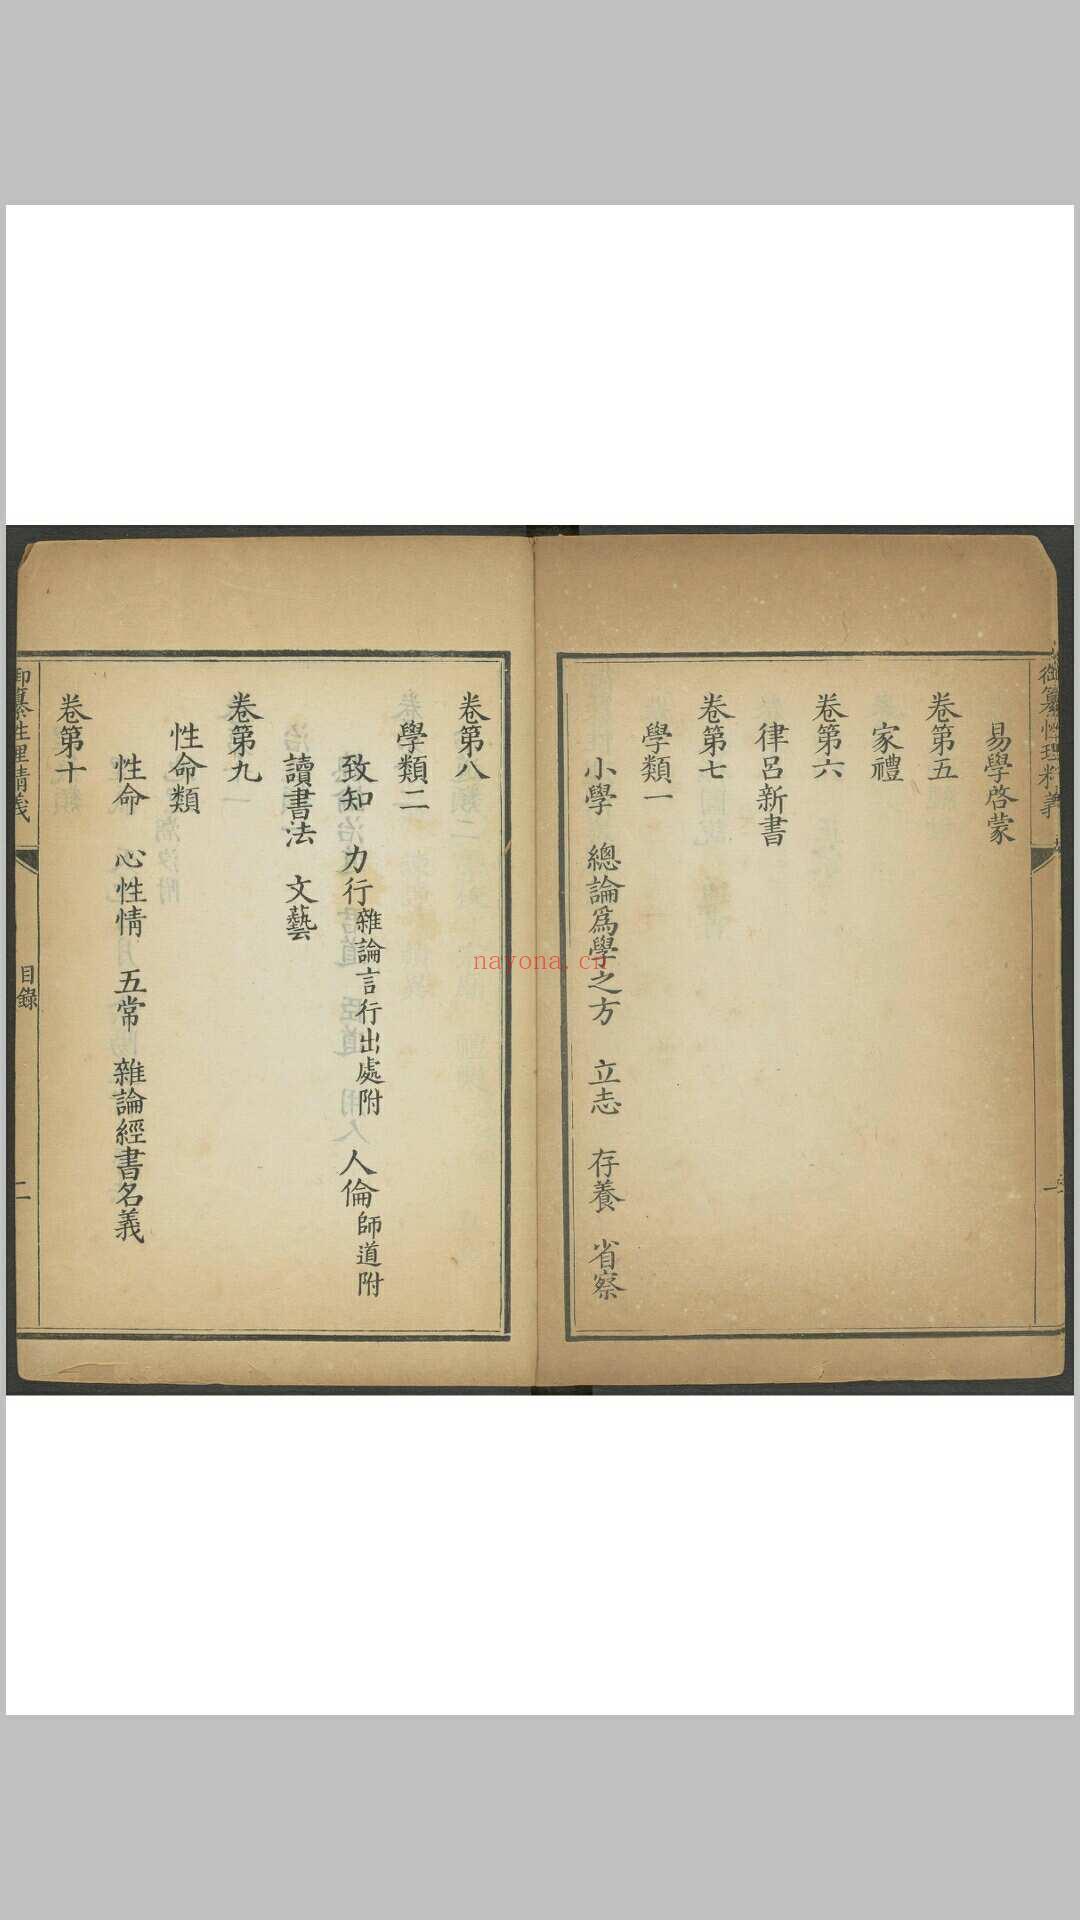 御纂性理精義
易學啓蒙
卷第五
家禮
卷第六
律呂新書
卷第七
學類一
小學 總論爲學之方 立志 存養 省察
卷第八
學類二
致知 力行 雜論言行出處附 人倫 師道附
讀書法 文藝
卷第九
性命類
性命 心性情 五常 雜論經書名義
卷第十
御纂性理精義
目錄
二
nayona.cn